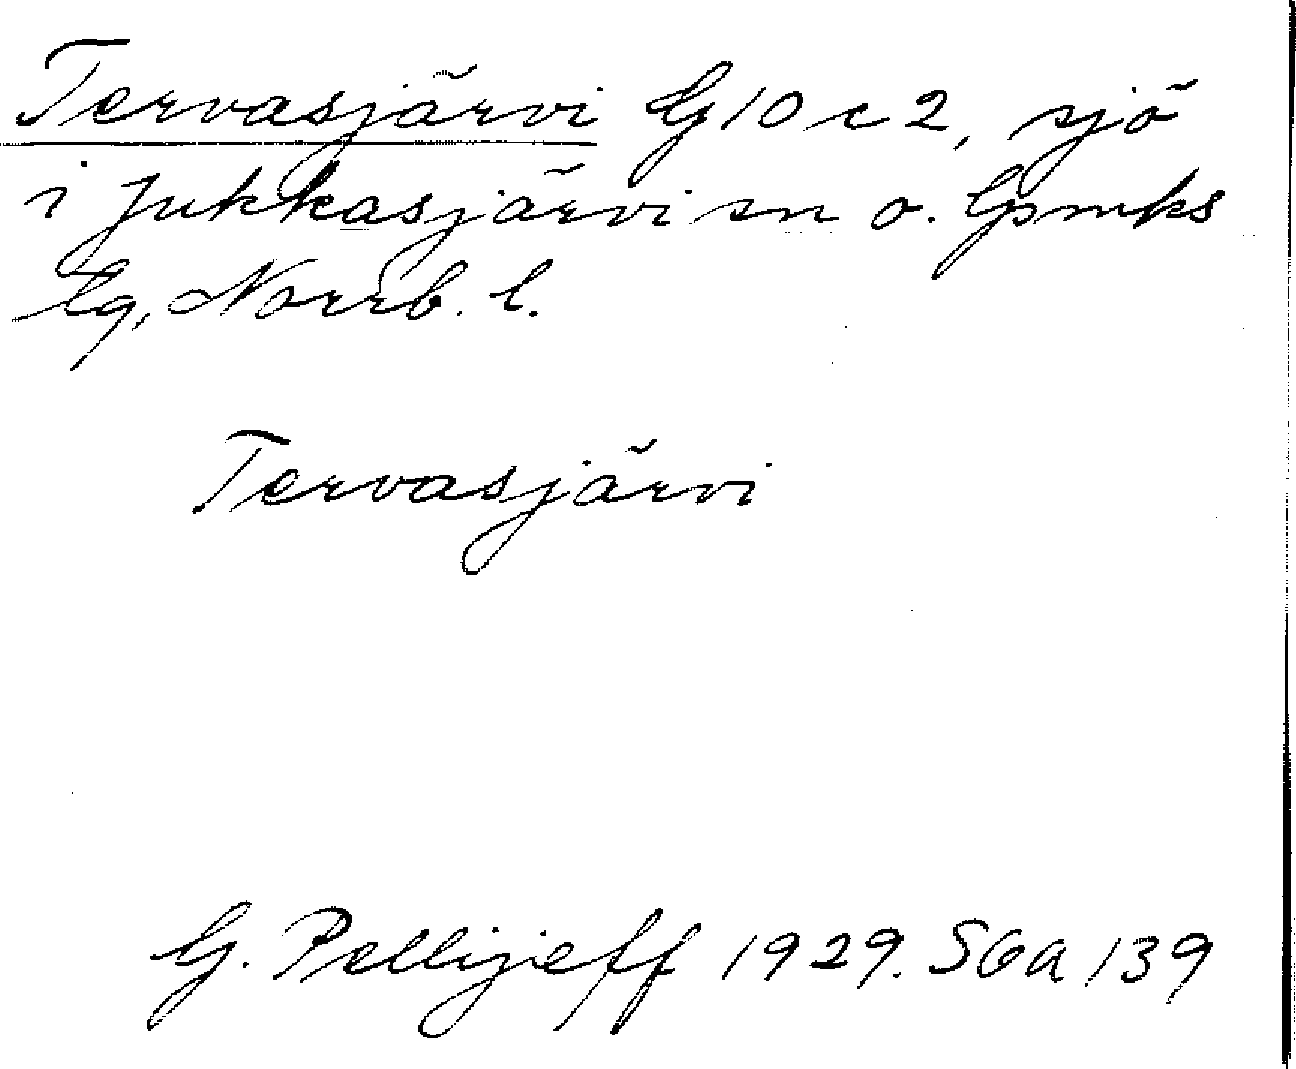 Tervasjärvi G10c2, sjö
i Jukkasjärvi sn o. Lpmks
lg, Norrb. l.
Tervasjärvi
G. Pellijeff 1929. SGa 139